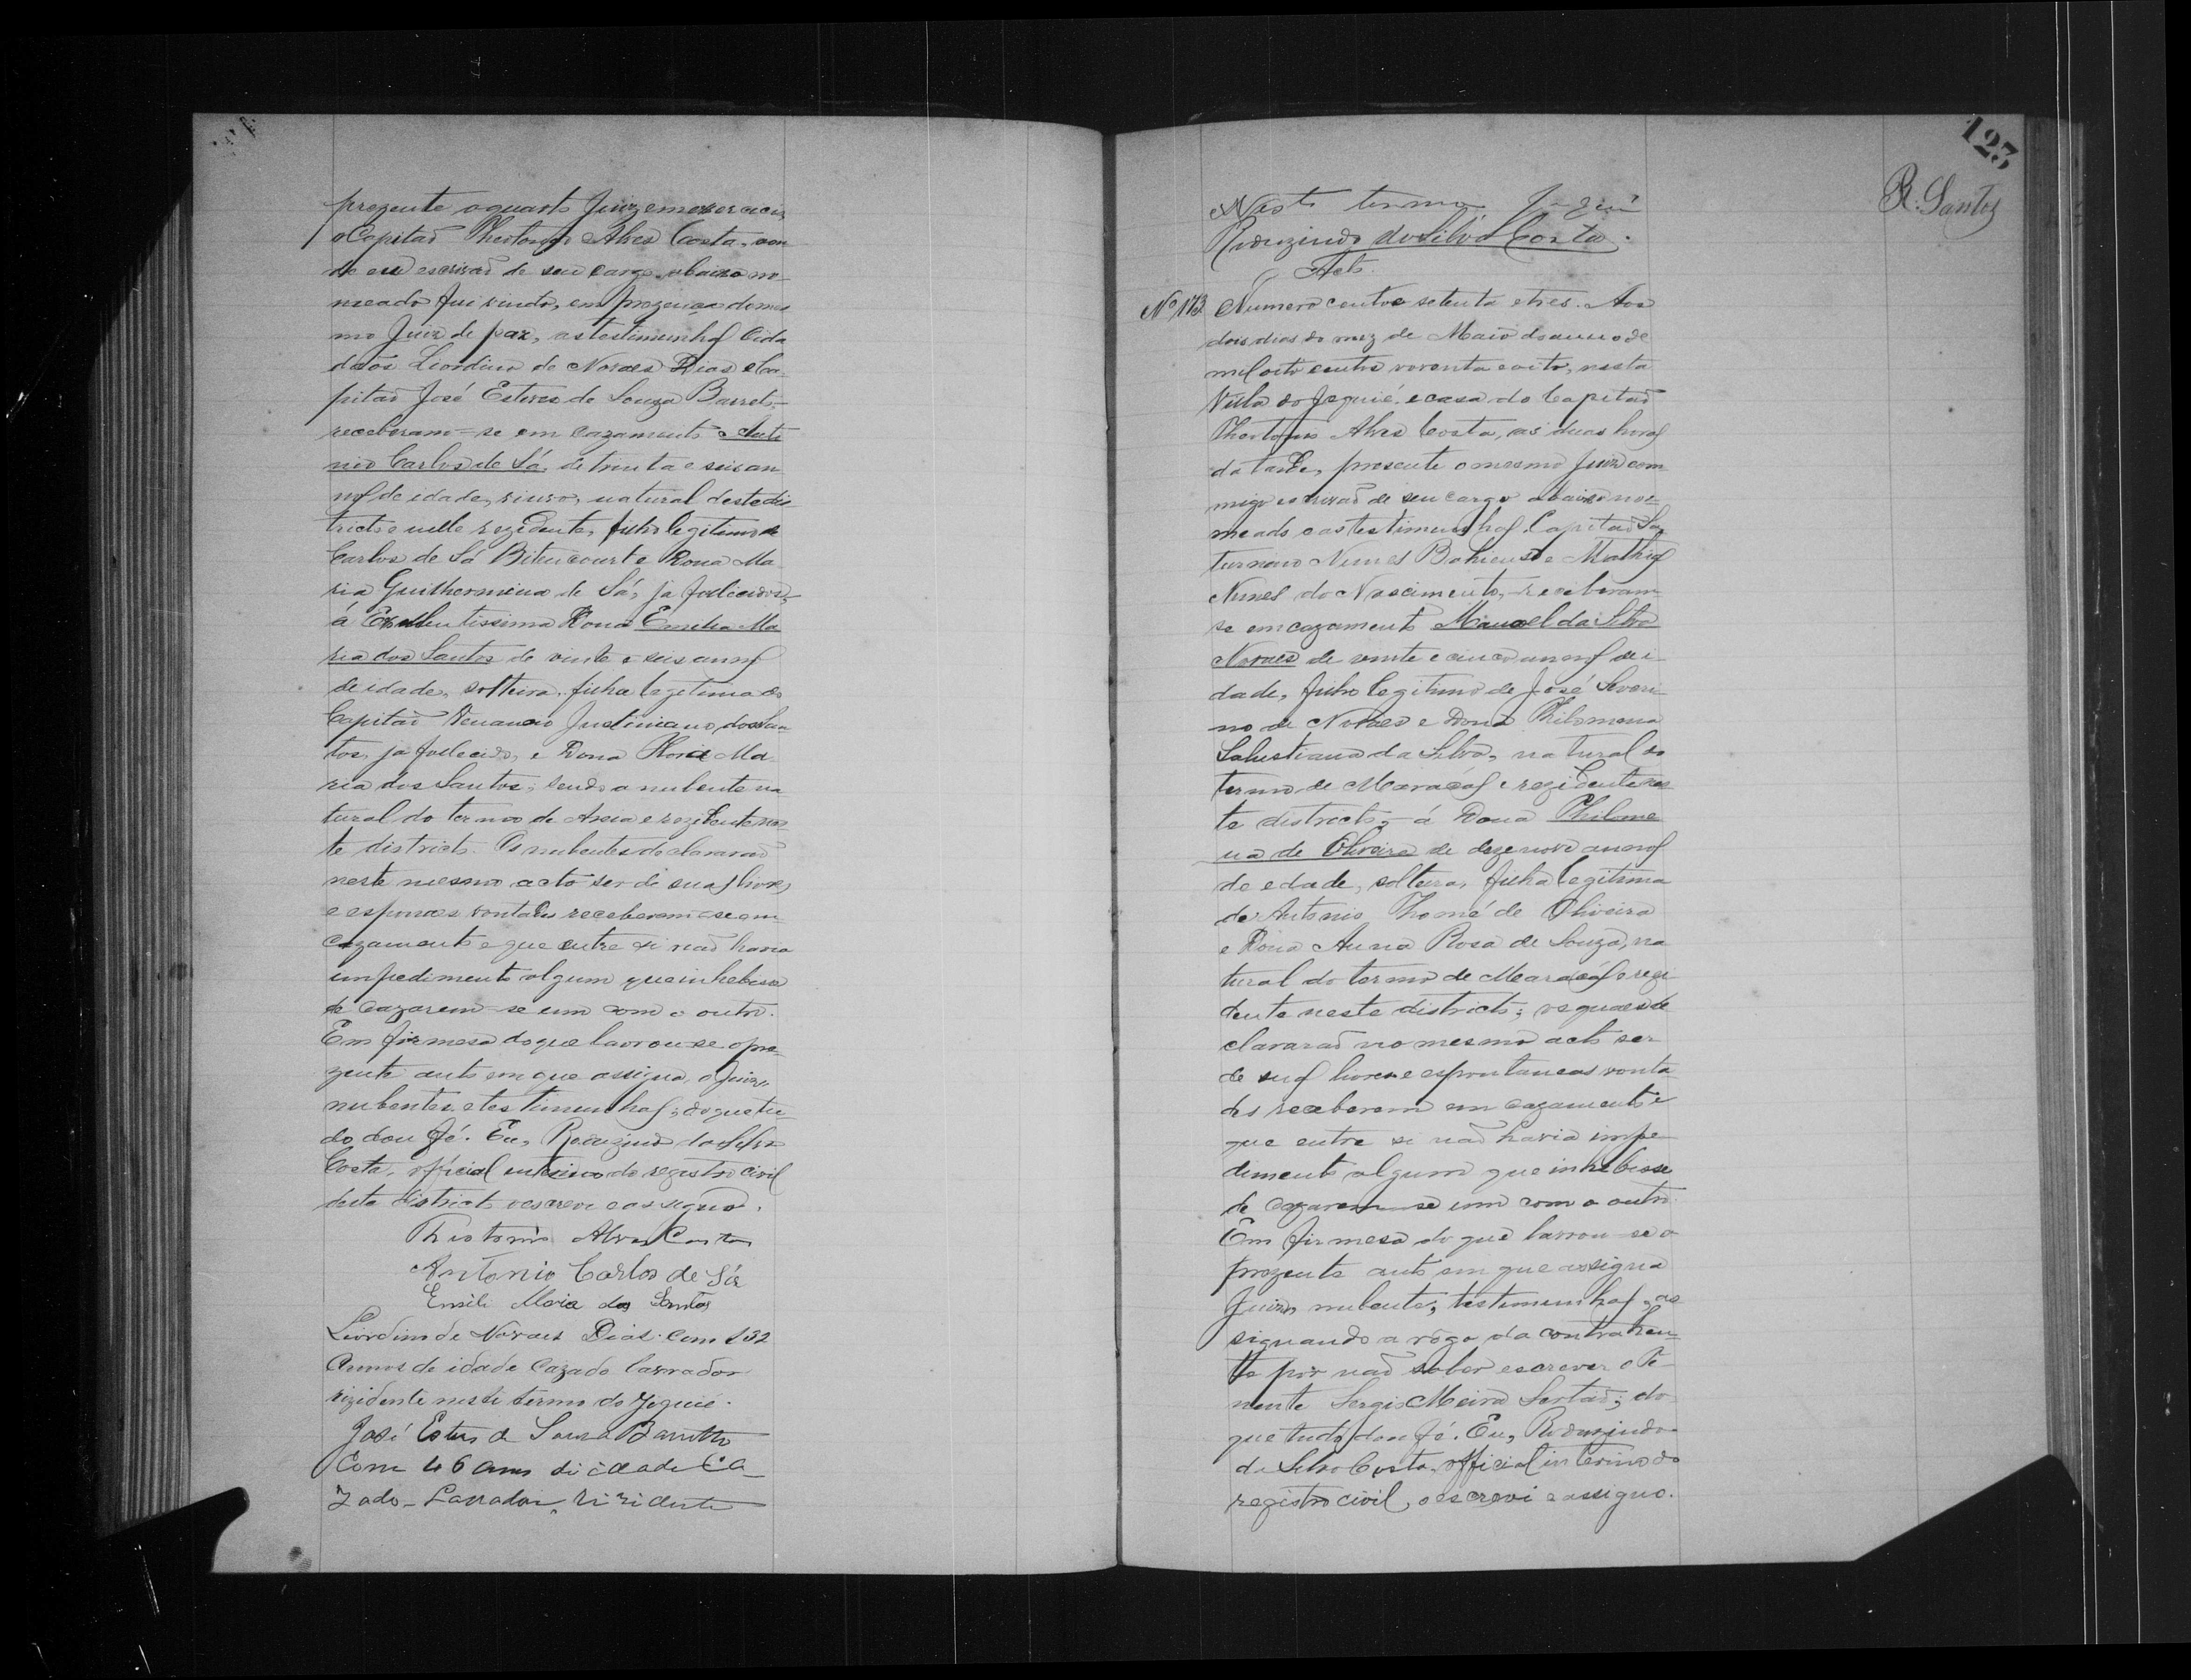 prezente o quarto Juiz em exercicio
o Capitaõ Theotonio Alves Costa, on
de eu escrivaõ de seu cargo abaixo no
meado fui vindo, em prezença do mes
mo Juiz de paz, as testimunhas Cida
dãos Liordino de Novaes Dias e Ca-
pitaõ José Esteves de Souza Barreto,
receberam-se em cazamento Anto
nio Carlos de Sá, de trinta e seis an
nos de idade, viuvo, natural deste dis
tricto e nelle rezidente, filho legitimo de
Carlos de Sá Bitencourt e Dona Ma
ria Guilhermina de Sá, ja fallecidos,
á Excellentissima Dona Emilia Ma
ria dos Santos de vinte e seis annos
de idade, solteira, filha legitima do
Capitaõ Venancio Justiniano dos San
tos, ja fallecido, e Dona Ma
ria dos Santos; sendo a nubente na
tural do termo de Areia e rezidente nes
te districto. Os nubentes declararaõ
neste mesmo acto ser de suas livres
e esponaes vontades receberem-se em
cazamento e que entre si naõ havia
impedimento algum que inhebisse
de cazarem-se um com o outro.
Em firmesa do que lavrou-se o pre-
zente auto em que assigna o Juiz,
nubentes e testimunhas; do que tu
do dou fé. Eu, Roduzindo da Silva
Costa, official interino do registro civil
deste districto o escrevi e assigno.
Theotonio Alves Costa
Antonio Carlos de Sá
Emili Maria dos Santos
Liordino de Novaes Dias com 32
Annos de idade Cazado lavrador
rizidente nesti termo do Jiquié.
José Estves de Souza Barretto
Com 46 anns di idade Ca_
Zado_Lavrador, rizidente
123
R. Santos
Nésto termo
Roduzindo da Silva Costa.
Nº 173 Numero cento e setenta e tres. Aos
dois dias do mez de Maio do anno de
mil oito centos noventa e oito, nesta
Villa do Jequié, e casa do Capitaõ
Theotonio Alves Costa, as duas horas
da tarde, presente o mesmo Juiz com
migo escrivaõ de seu cargo abaixo no-
meado e as testimunhas Capitaõ Sa
turnino Nunes Bahiense e Mathias
Nunes do Nascimento, receberam
se em cazamento Manoel da Silva
Novaes de vinte e cinco annos de i-
dade, filho legitimo de José Severi-
no de Novaes e Dona Philomena
Salustiana da Silva, natural do
termo de Maracás e rezidente nes
te districto, á Dona Philome
na de Oliveira de dezenove annos
de edade, solteira, filha legitima
de Antonio Thomé de Oliveira
e Dona Anna Rosa de Souza, na
tural do termo de Maracás e rezi
dente neste districto; os quaes de
clararaõ no mesmo acto ser
de suas livres e espontaneas vonta
des receberem em cazamento e
que entre si naõ havia impe
dimento algum que inhebisse
de cazarem-se um com o outro.
Em firmesa do que lavrou-se o
prezente auto em que assigna
Juiz, nubente, testimunhas, as
signando a rôgo da contrahen-
te por naõ saber escrever o Te-
nente Sergio Meira Sertaõ; do
que tudo dou fé. Eu, Roduzindo
da Silva Costa, official interino do
registro civil, o escrevi e assigno.